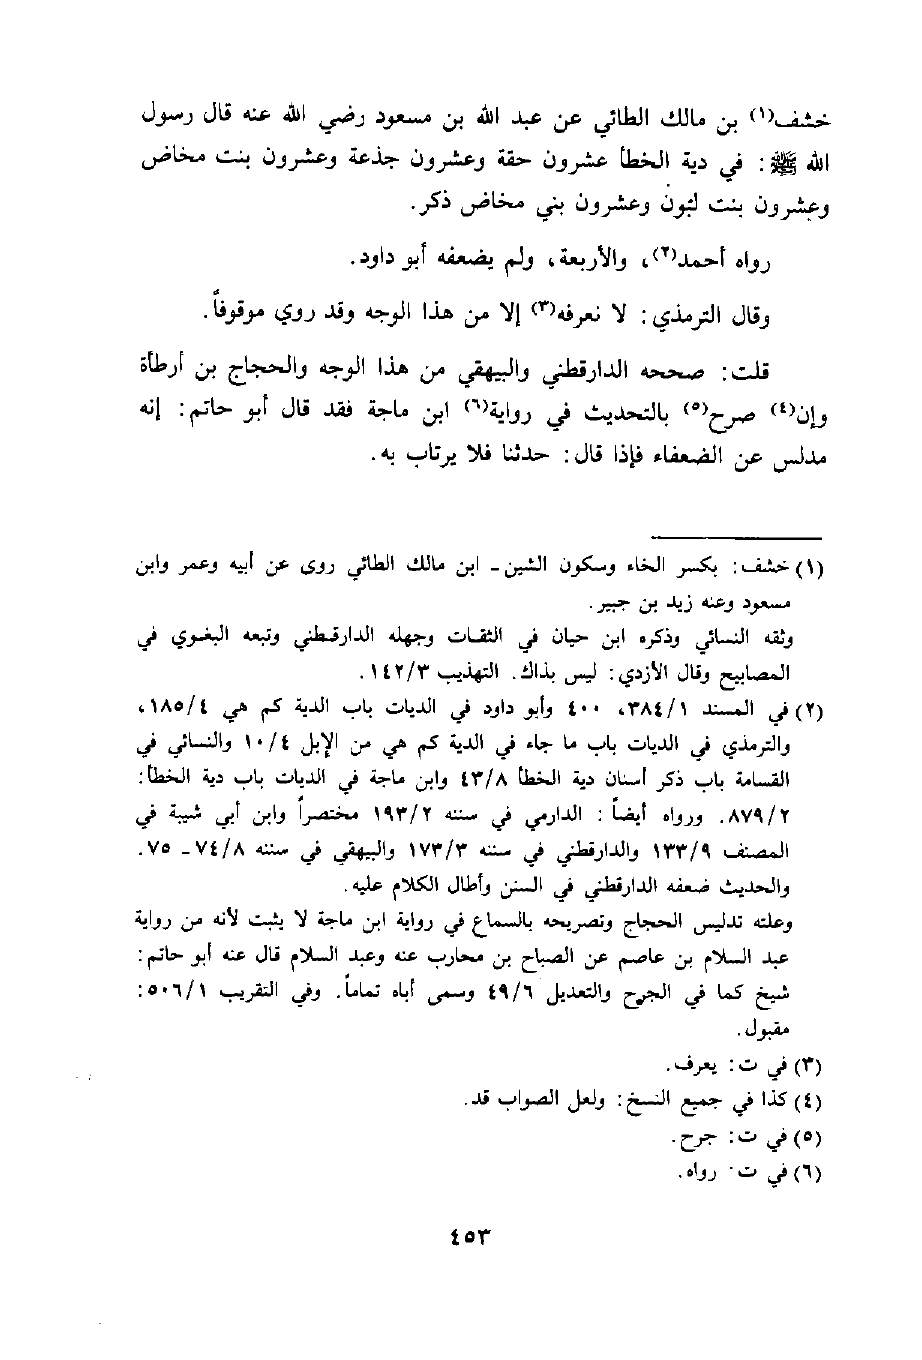 خشف(١) بن مالك الطائي عن عبد الله بن مسعود رضي الله عنه قال رسول
الله ﷺ: في دية الخطأ عشرون حقة وعشرون جذعة وعشرون بنت مخاض
وعشرون بنت لبون وعشرون بني مخاض ذكر.
رواه أحمد(٢)، والأربعة، ولم يضعفه أبو داود.
وقال الترمذي: لا نعرفه(٣) إلا من هذا الوجه وقد روي موقوفاً.
قلت: صححه الدارقطني والبيهقي من هذا الوجه والحجاج بن أرطأة
وإن(٤) صرح(٥) بالتحديث في رواية(٦) ابن ماجة فقد قال أبو حاتم: إنه
مدلس عن الضعفاء فإذا قال: حدثنا فلا يرتاب به.
(١) خشف: بكسر الخاء وسكون الشين- ابن مالك الطائي روى عن أبيه وعمر وابن
مسعود وعنه زيد بن جبير.
وثقه النسائي وذكره ابن حبان في الثقات وجهله الدارقطني وتبعه البغوي في
المصابيح وقال الأزدي: ليس بذاك. التهذيب ١٤٢/٣.
(٢) في المسند ٣٨٤/١، ٤٠٠ وأبو داود في الديات باب الدية كم هي ١٨٥/٤،
والترمذي في الديات باب ما جاء في الدية كم هي من الإبل ١٠/٤ والنسائي في
القسامة باب ذكر أسنان دية الخطأ ٤٣/٨ وابن ماجة في الديات باب دية الخطأ:
٨٧٩/٢. ورواه أيضاً: الدارمي في سننه ١٩٣/٢ مختصراً وابن أبي شيبة في
المصنف ١٣٣/٩ والدارقطني في سننه ١٧٣/٣ والبيهقي في سننه ٧٤/٨- ٧٥.
والحديث ضعفه الدارقطني في السنن وأطال الكلام عليه.
وعلته تدليس الحجاج وتصريحه بالسماع في رواية ابن ماجة لا يثبت لأنه من رواية
عبد السلام بن عاصم عن الصباح بن محارب عنه وعبد السلام قال عنه أبو حاتم:
شيخ كما في الجرح والتعديل ٤٩/٦ وسمى أباه تماماً. وفي التقريب ٥٠٦/١:
مقبول.
(٣) في ت: يعرف.
(٤) كذا في جميع النسخ: ولعل الصواب قد.
(٥) في ت: جرح.
(٦) في ت: رواه.
٤٥٣